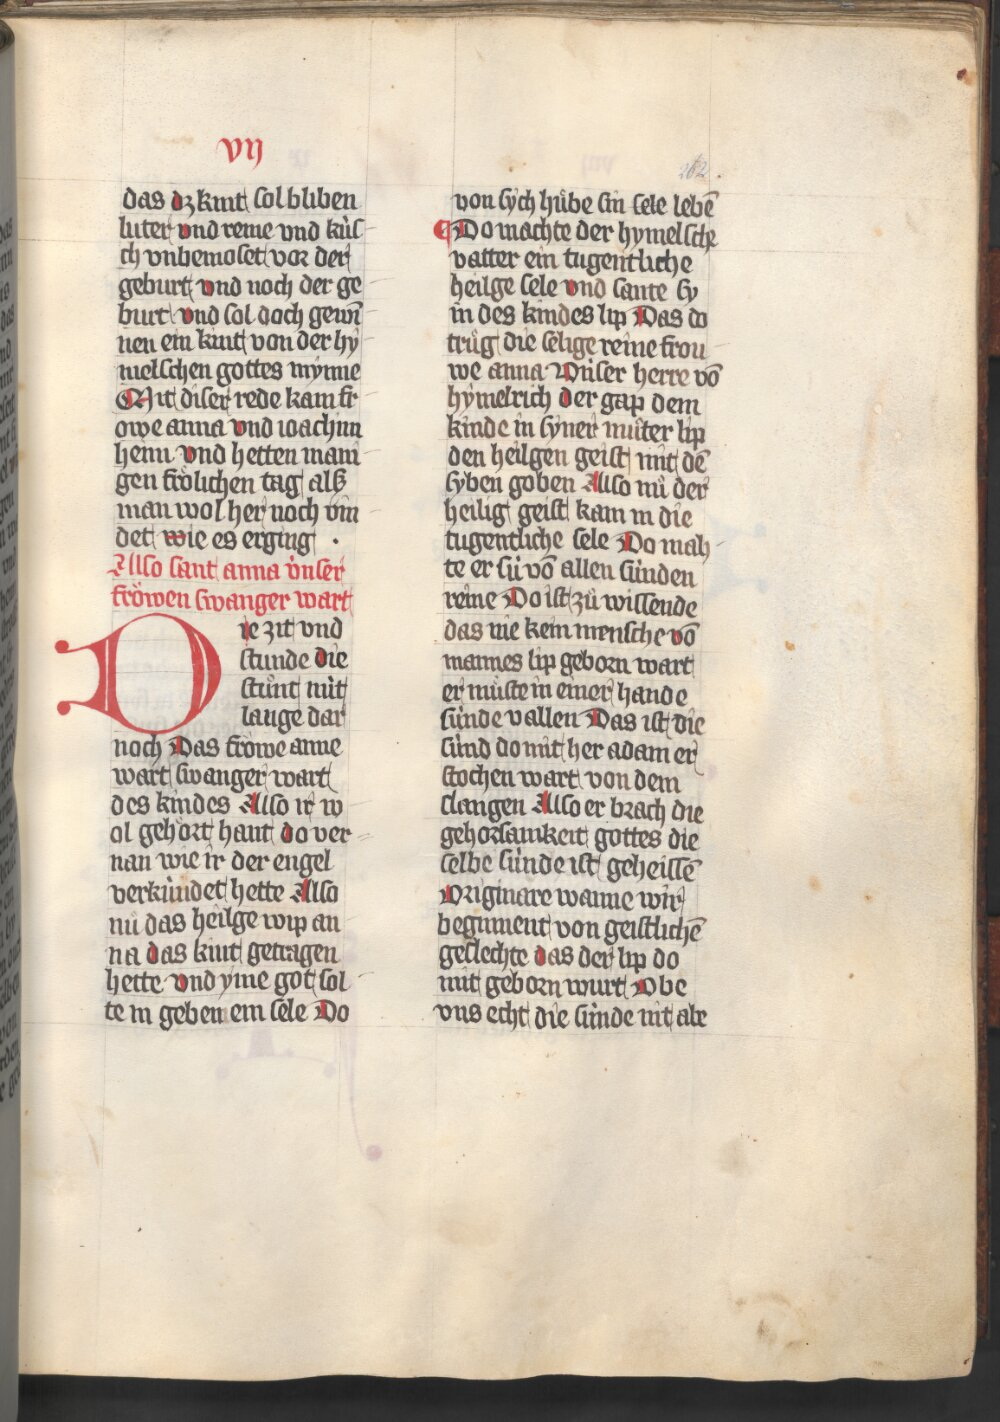 vij
262.
das dz kint sol bliben
luter vnd reine vnd kúſ
ch vnbemoset vor der
geburt vnd noch der ge
burt vnd sol doch gewī
nen ein kint von der hy
melschen gottes mynne
Mit diser rede kam fr
owe anna vnd ioachim
heim vnd hetten mani
gen frölichen tag alß
man wol her noch vin
det wie es erging .
Also sant anna vnser
fröwen swanger wart
Die zit vnd
stunde die
stůnt nit
lange dar
noch Das fröwe anne
wart swanger wart
des kindes Also ir w
ol gehört hant do ver
nan wie ir der engel
verkúndet hette Also
nů das heilge wip an
na das kint getragen
hette vnd yme got sol
te in geben ein sele Do
von sych hůbe sin sele lebē
Do machte der hymelsche
vatter ein tugentliche
heilge sele vnd sante sy
in des kindes lip Das do
trůg die selige reine frou
we anna Vnser herre vō
hymelrich der gap dem
kinde in syner můter lip
den heilgen geist mit dē
syben goben Also nů der
heilig geist kam in die
tugentliche sele Do mah
te er sú vō allen súnden
reine Do ist zů wissende
das nie kein mensche vō
mannes lip geborn wart
er můste in einer hande
súnde vallen Das ist die
súnd do mit her adam er
stochen wart von dem
slangen Also er brach die
gehorsamkeit gottes die
selbe súnde ist geheissē
Originare wanne wir
beginnent von geistlichē
geslechte das der lip do
mit geborn wurt Obe
vns echt die súnde nit abe